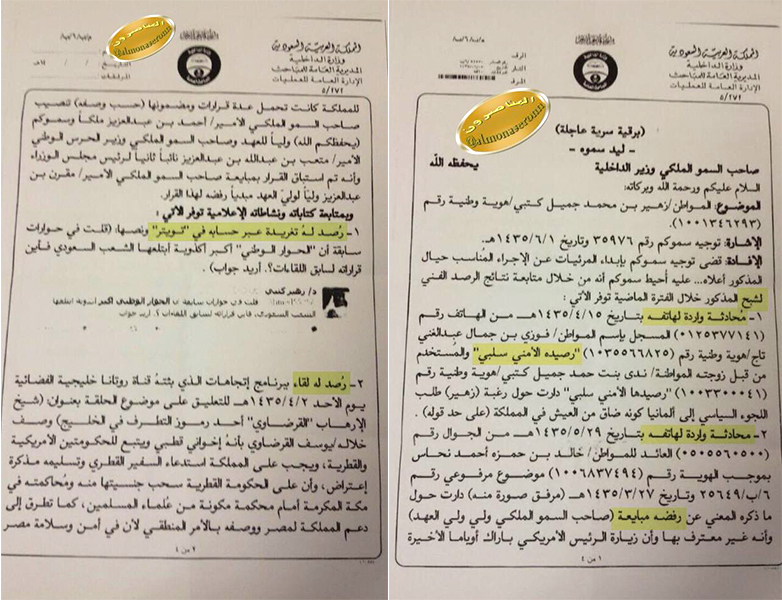 المملكة العربية السعودية
وزارة الداخلية
المديرية العامة للمباحث
الإدارة العامة للعمليات
٥/٢٧٢
الرقم
التاريخ
المرفقات
المناصرون
@almonaseronn
(برقية سرية عاجلة)
- ليد سموه -
صاحب السمو الملكي وزير الداخلية يحفظه الله
السلام عليكم ورحمة الله وبركاته:
الموضوع: المواطن/زهير بن محمد جميل كتبي/هوية وطنية رقم
(١٠٠١٣٤٦٢٩٣).
الإشارة: توجيه سموكم رقم ٣٥٩٧٦ وتاريخ ١٤٣٥/٦/١هـ.
الإفادة: قضى توجيه سموكم بإبداء المرئيات عن الإجراء المناسب حيال
المذكور أعلاه... عليه أحيط سموكم أنه من خلال متابعة نتائج الرصد الفني
لشبح المذكور خلال الفترة الماضية توفر الآتي:
١- مُحادثة واردة لهاتفه بتاريخ ١٤٣٥/٤/١٥هـ من الهاتف رقم
(٠١٢٥٣٧٧١٤١) المسجل بإسم المواطن/ فوزي بن جمال عبدالغني
تاج/هوية وطنية رقم (١٠٣٥٥٦٦٨٢٥) "رصيده الأمني سلبي" والمستخدم
من قبل زوجته المواطنة/ ندى بنت حمد جميل كتبي/هوية وطنية رقم
(١٠٠٣٣٠٠٠٤١) "رصيدها الأمني سلبي" دارت حول رغبة (زهير) طلب
اللجوء السياسي إلى ألمانيا كونه ضاق من العيش في المملكة (على حد قوله).
٢- محادثة واردة لهاتفه بتاريخ ١٤٣٥/٥/٢٩هـ من الجوال رقم
(٠٥٠٥٥٦٠٥٠٠) العائد للمواطن/ خالد بن حمزه أحمد نحاس
بموجب الهوية رقم (١٠٠٦٨٣٧٤٩٤) موضوع مرفوعي رقم
٦/ب/٢٥٦٤٩ وتاريخ ١٤٣٥/٣/٢٧هـ (مرفق صورة منه) دارت حول
ما ذكره المعني عن رفضه مبايعة (صاحب السمو الملكي ولي ولي العهد)
وأنه غير معترف بها وأن زيارة الرئيس الأمريكي باراك أوباما الأخيرة
١ من ٤
المملكة العربية السعودية
وزارة الداخلية
المديرية العامة للمباحث
الإدارة العامة للعمليات
٥/٢٧٢
التاريخ
المرفقات
المناصرون
@almonaseronn
للمملكة كانت تحمل عدة قرارات ومضمونها (حسب وصفه) تنصيب
صاحب السمو الملكي الأمير/ أحمد بن عبدالعزيز ملكاً وسموكم
(يحفظكم الله) ولياً للعهد وصاحب السمو الملكي وزير الحرس الوطني
الأمير/ متعب بن عبدالله بن عبدالعزيز نائباً ثانياً لرئيس مجلس الوزراء
وأنه تم استباق القرار بمبايعة صاحب السمو الملكي الأمير/ مقرن بن
عبدالعزيز ولياً لولي العهد مبدياً رفضه لهذا القرار.
وبمتابعة كتاباته ونشاطاته الإعلامية توفر الآتي:
١- رُصد لهُ تغريدة عبر حسابه في "تويتر" ونصها: (قلت في حوارات
سابقة أن "الحوار الوطني" أكبر أكذوبة أبتلعها الشعب السعودي فأين
قراراته لسابق اللقاءات؟. أريد جواب).
د/ زهير كتبي
قلت في حوارات سابقة ان الحوار الوطني اكبر اكذوبة ابتلعها
الشعب السعودي، فاين قراراته لسابق اللقاءات؟ اريد جواب
٢- رُصد له لقاء ببرنامج إتجاهات الذي بثتهُ قناة روتانا خليجية الفضائية
يوم الأحد ١٤٣٥/٤/٢هـ للتعليق على موضوع الحلقة بعنوان (شيخ
الإرهاب "القرضاوي" أحد رموز التطرف في الخليج) وصف
خلاله/يوسف القرضاوي بأنهُ إخواني قطبي ويتبع للحكومتين الأمريكية
والقطرية، ويجب على المملكة استدعاء السفير القطري وتسليمه مذكرة
إعتراض، وأن على الحكومة القطرية سحب جنسيتها منه ومُحاكمته في
مكة المكرمة أمام محكمة مكونة من عُلماء المسلمين، كما تطرق إلى
دعم المملكة لمصر ووصفه بالأمر المنطقي لأن في أمن وسلامة مصر
٢ من ٤